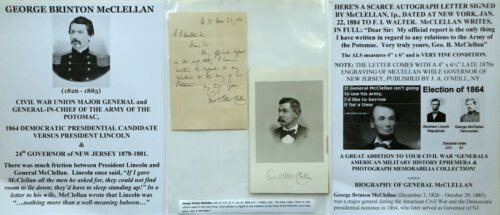 GEORGE BRINTON McCLELLAN
(1826 - 1885)
CIVIL WAR UNION MAJOR GENERAL and
GENERAL-IN-CHIEF OF THE ARMY OF THE
POTOMAC,
1864 DEMOCRATIC PRESIDENTIAL CANDIDATE
VERSUS PRESIDENT LINCOLN
&
24th GOVERNOR of NEW JERSEY 1878-1881.
There was much friction between President Lincoln and
General McClellan. Lincoln once said, "If I gave
McClellan all the men he asked for, they could not find
room to lie down; they'd have to sleep standing up!" In a
letter to his wife, McClellan wrote that Lincoln was
"...nothing more than a well-meaning baboon..."
Geo B McClellan
Geo B McClellan
HERE'S A SCARCE AUTOGRAPH LETTER SIGNED
by McCLELLAN, Ip., DATED AT NEW YORK, JAN.
22, 1884 TO F. I. WALTER. McCLELLAN WRITES,
IN FULL: "Dear Sir: My official report is the only thing
I have written in regard to any relations to the Army of
the Potomac. Very truly yours, Geo. B. McClellan"
The ALS measures 4" x 6" and is in VERY FINE CONDITION.
NOTE: THE LETTER COMES WITH A 4" x 6½" LATE 1870s
ENGRAVING OF MCCELLAN WHILE GOVERNOR OF
NEW JERSEY, PUBLISHED BY J. A. O'NEILL, NY.
If General McClellan isn't going
to use his army,
I'd like to borrow
it for a time
Election of 1864
Abraham Lincoln
Republican
George McClellan
Democrat
Electoral votes
212 21
A GREAT ADDITION TO YOUR CIVIL WAR GENERALS
AMERICAN MILITARY HISTORY EPHEMERA &
PHOTOGRAPH MEMORABILIA COLLECTION!
BIOGRAPHY OF GENERAL McCLELLAN
George Brinton McClellan (December 3, 1826 – October 29, 1885)
was a major general during the American Civil War and the Democratic
presidential nominee in 1864, who later served as Governor of New Jersey.